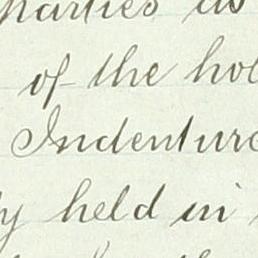 parties as
of the hol
Indenture
y held in